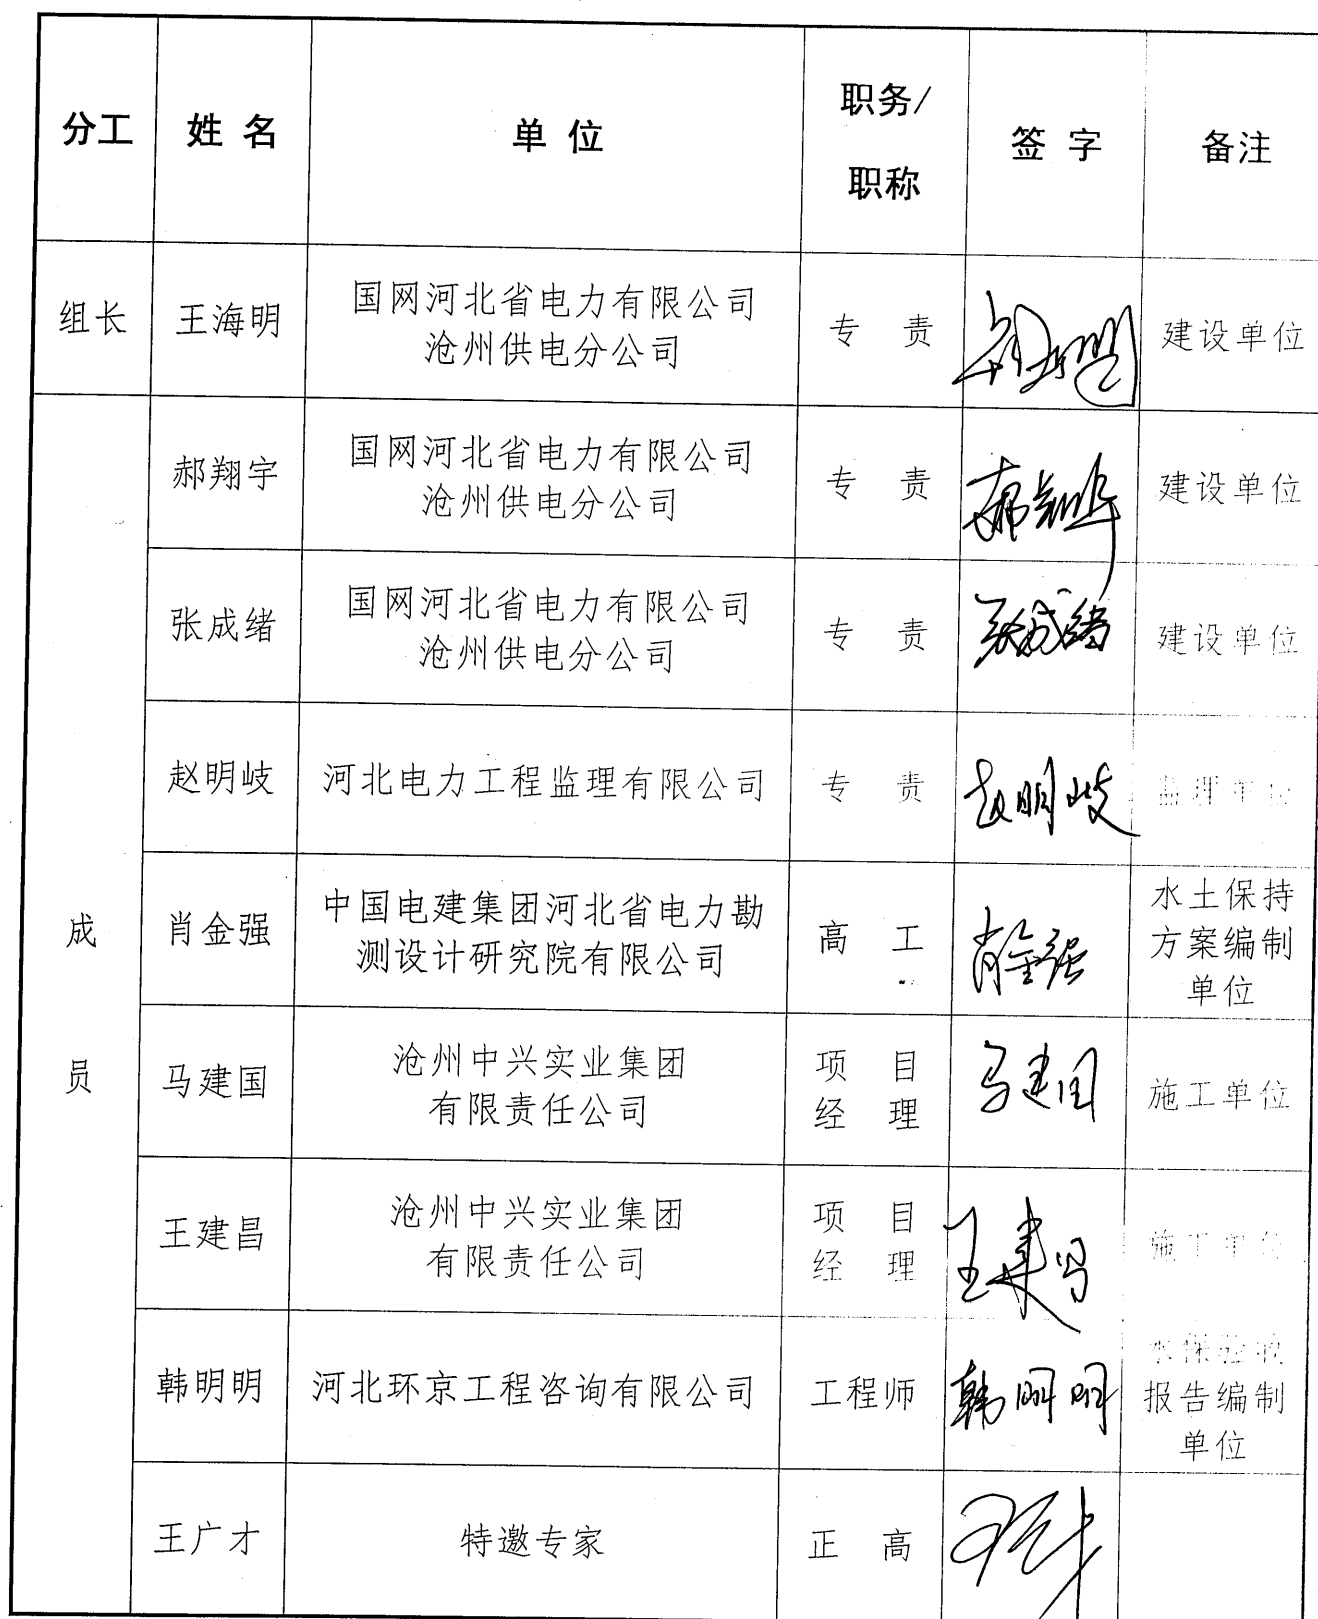 分工 姓名 单位 职务/职称 签字 备注
组长 王海明 国网河北省电力有限公司沧州供电分公司 专责 建设单位
成员
郝翔宇 国网河北省电力有限公司沧州供电分公司 专责 郝翔宇 建设单位
张成绪 国网河北省电力有限公司沧州供电分公司 专责 张成绪 建设单位
赵明岐 河北电力工程监理有限公司 专责 赵明岐 监理单位
肖金强 中国电建集团河北省电力勘测设计研究院有限公司 高工 肖金强 水土保持方案编制单位
马建国 沧州中兴实业集团有限责任公司 项目经理 马建国 施工单位
王建昌 沧州中兴实业集团有限责任公司 项目经理 王建昌 施工单位
韩明明 河北环京工程咨询有限公司 工程师 韩明明 水保验收报告编制单位
王广才 特邀专家 正高